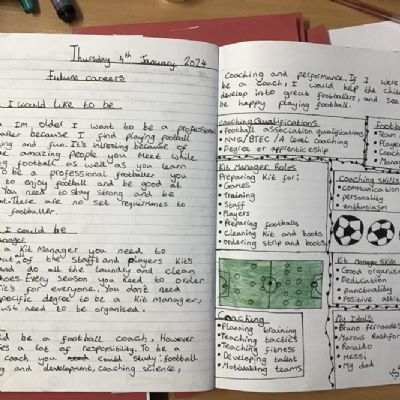 Thursday 4th January 2024
Future careers
I would like to be
I'm older I want to be a professional
because I find playing football
and fun. It's interesting because of
amazing people you meet while
football as well as you learn
be a professional footballer you
to enjoy football and be good at
You need to stay strong and be
There are no set requirments to
footballer.
I could be
manager
a Kit Manager you need to
out of the staffs and players kits
and do all the laundry and clean
shoes. Every season you need to order
kits for everyone. You don't need
specific degree to be a Kit Manager,
just need to be organised.
be a football coach, However
a lot of responsibility. To be a
coach you could study: football
and development, coaching science,
coaching and performance. If I were
be a coach, I would help the
develop into great footballers, and see
be happy playing football.
Coaching Qualifications
• Football association qualifications
• NVQ/BTEC/A level coaching
• Degree or apprenticeship
Footb
• Team
• Player
• Coach
• Mana
Kit Manager Roles
Preparing Kit for:
• Games
• Training
• Staff
• Players
• Preparing footballs
• Cleaning Kit and boots
• ordering strip and boots
Coaching Skills
• communication
• personality
• enthusiasm
Kit Manager Skills
• Good organis
• Dedication
• punctuality
• Positive attit
Coaching
• Planning training
• Teaching tactics
• Teaching fitness
• Developing talent
• Motivating teams
My Idols
• Bruno fernandes
• Marcus Rashfor
• Ronaldo
• Messi
• My dad